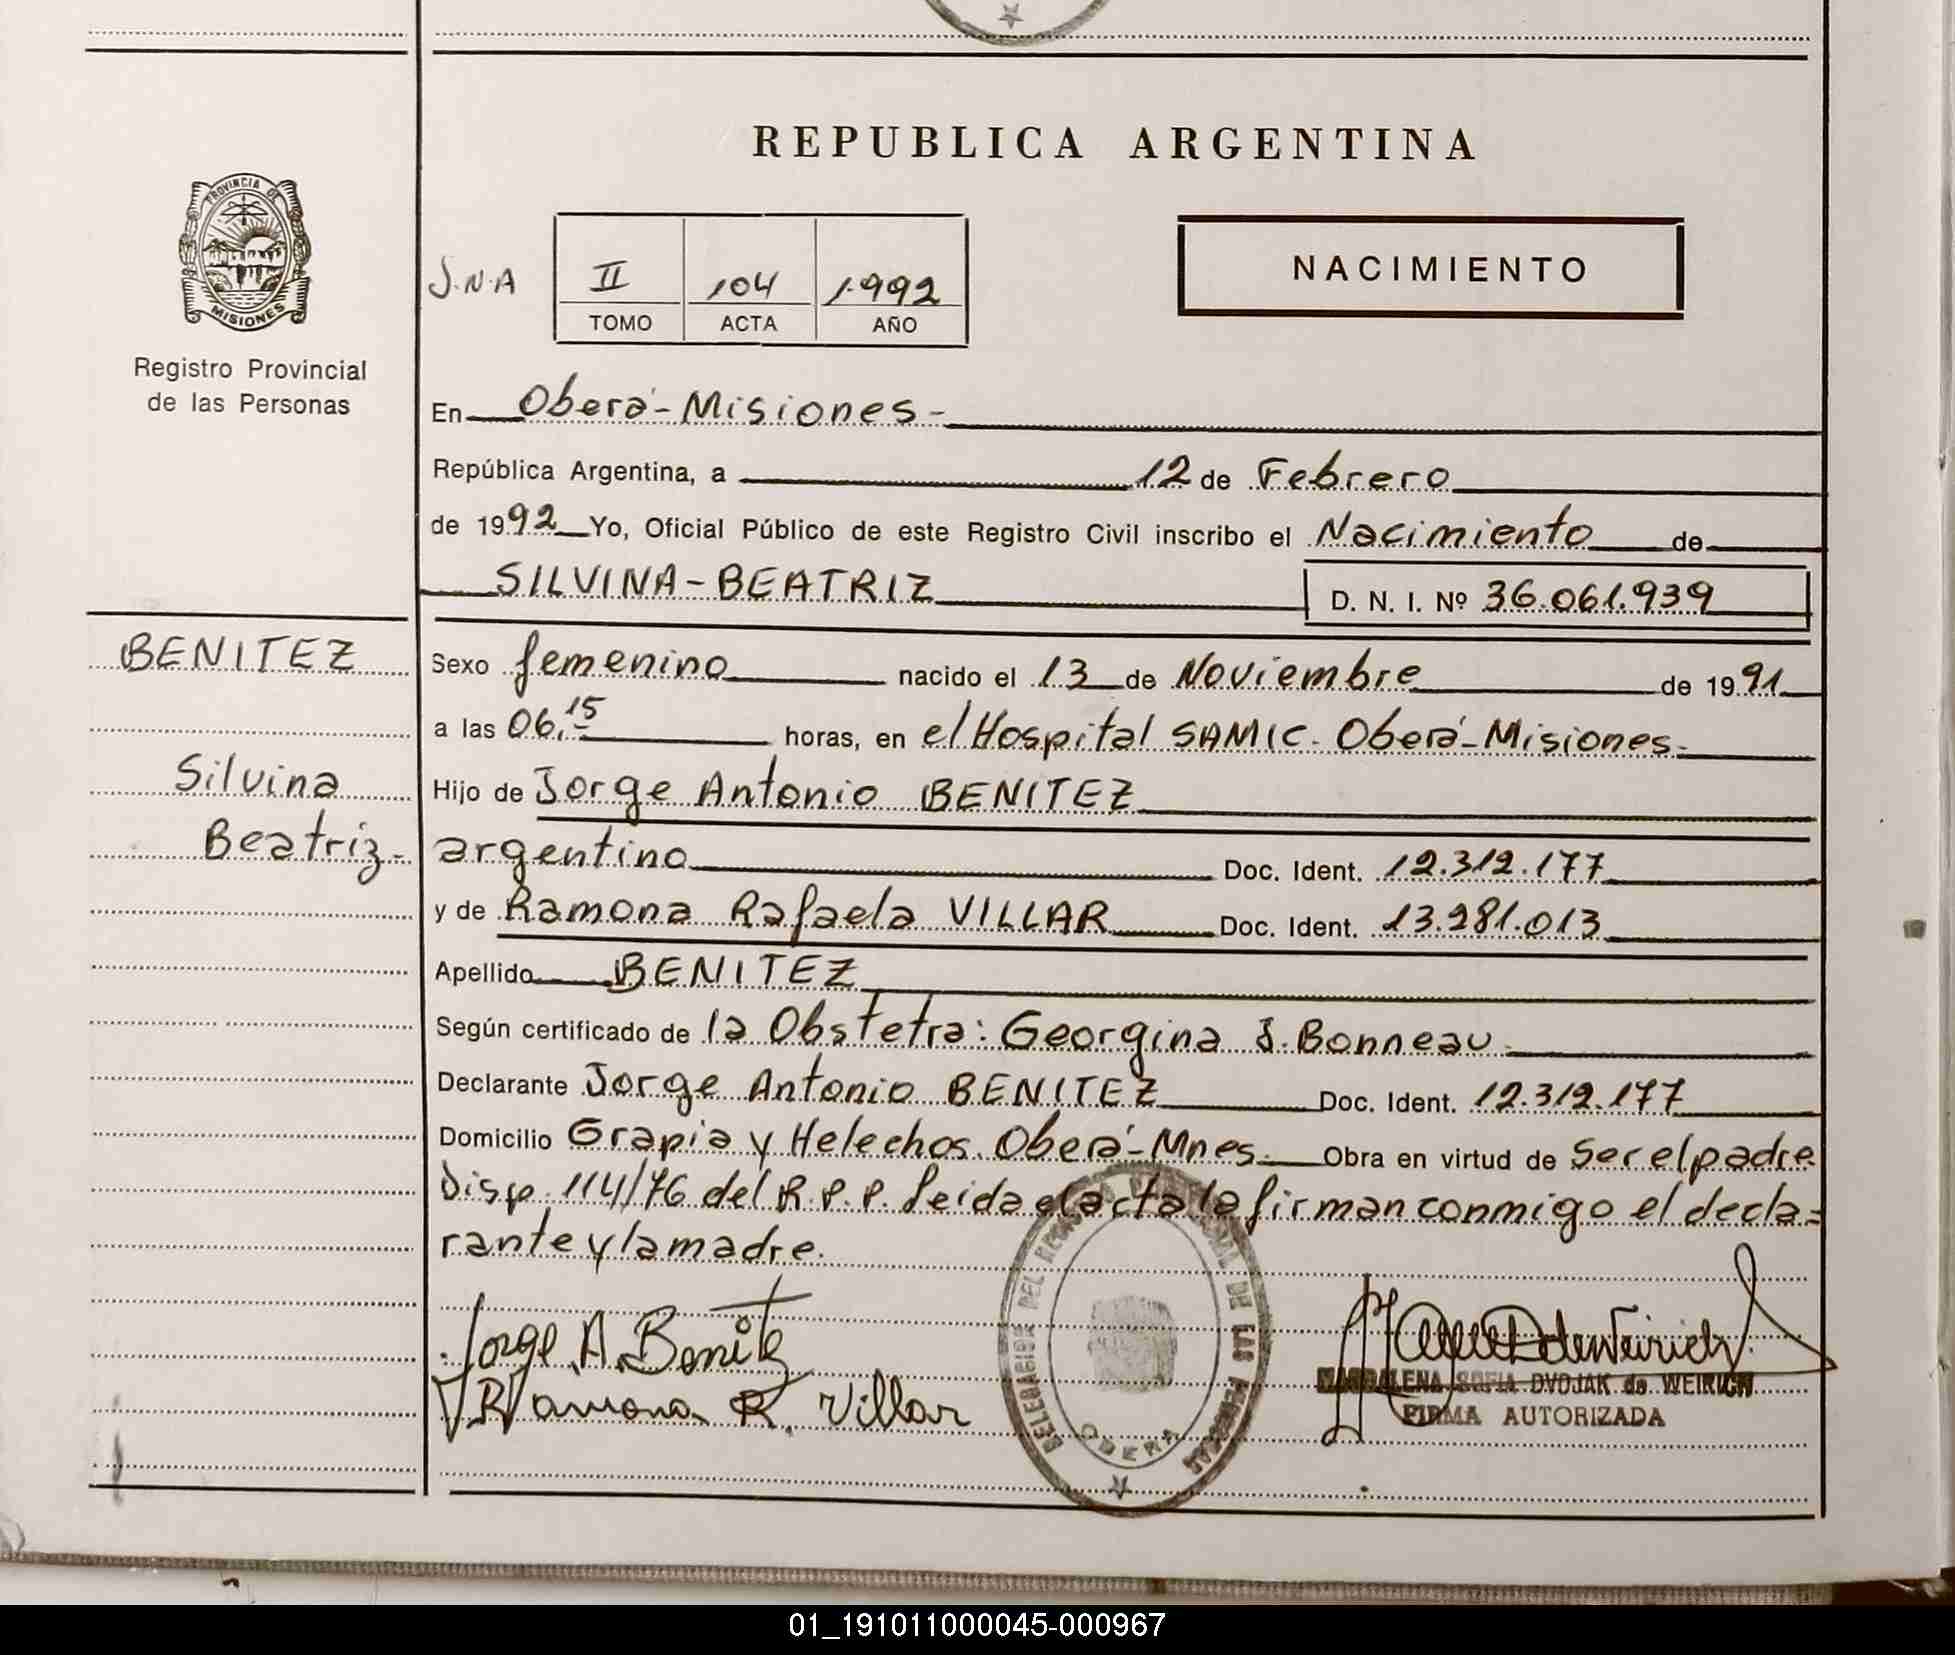 REPUBLICA ARGENTINA
PROVINCIA DE
MISIONES
Registro Provincial
de las Personas
J.N.A
II 104 1992
TOMO ACTA AÑO
NACIMIENTO
En Oberá-Misiones-
República Argentina, a 12 de Febrero
de 1992 Yo, Oficial Público de este Registro Civil inscribo el Nacimiento de
SILVINA-BEATRIZ D. N. I. Nº 36.061.939
BENITEZ
Silvina
Beatriz-
Sexo femenino nacido el 13 de Noviembre de 1991
a las 06,15 horas, en el Hospital SAMIC. Oberá-Misiones-
Hijo de Jorge Antonio BENITEZ
argentino Doc. Ident. 12.312.177
y de Ramona Rafaela VILLAR Doc. Ident. 13.281.013
Apellido BENITEZ
Según certificado de la Obstetra: Georgina J. Bonneau
Declarante Jorge Antonio BENITEZ Doc. Ident. 12.312.177
Domicilio Grapia y Helechos. Oberá-Mnes. Obra en virtud de ser el padre
Disp. 114/76 del R.P.P. Leida el acta la firman conmigo el decla=
rante y la madre.
Jorge A. Benitez
Ramona R. Villar
DELEGACION DEL REGISTRO PROVINCIAL DE LAS PERSONAS
OBERA
MAGDALENA SOFIA DVOJAK de WEIRICH
FIRMA AUTORIZADA
01_191011000045-000967